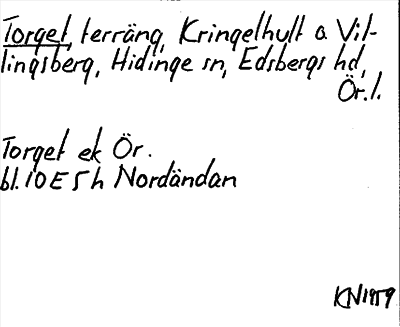 Torget, terräng, Kringelhult o. Vil-
lingsberg, Hidinge sn, Edsbergs hd,
Ör.l.
Torget ek Ör.
bl. 10E5h Nordändan
KN1959